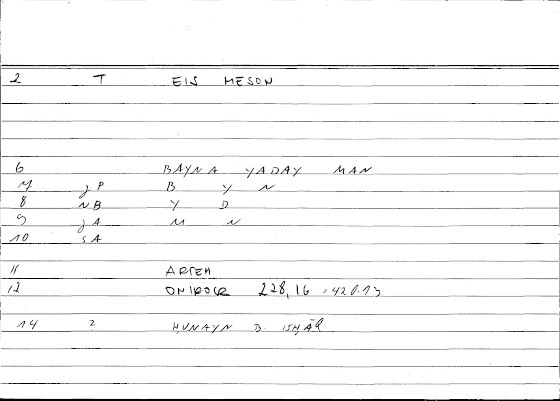 2 T EIS MESON
6 BAYNA YADAY MAN
7 JP B Y N
8 NB Y D
9 JA M N
10 SA
11 ARTEM
12 ONIROCR 228,16 = 420.13
14 2 ḤUNAYN B. ISḤĀQ